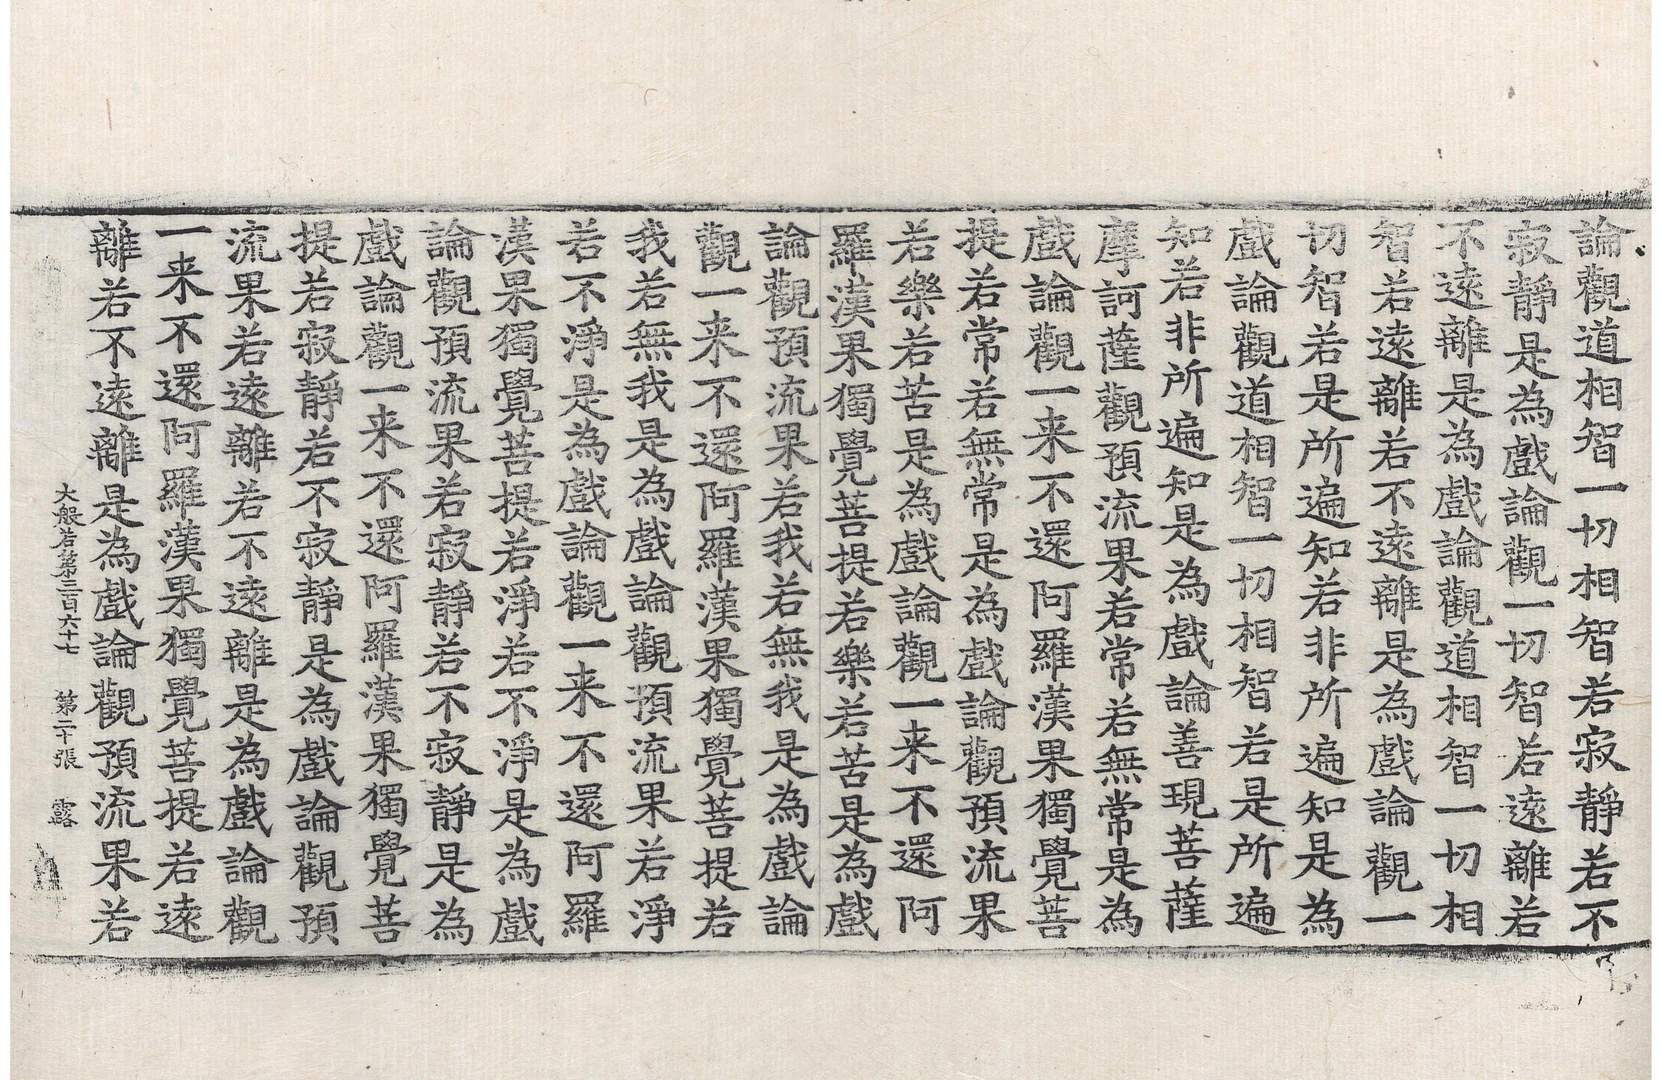 論觀道相智一切相智若寂靜若不
寂靜是為戲論觀一切智若遠離若
不遠離是為戲論觀道相智一切相
智若遠離若不遠離是為戲論觀一
切智若是所遍知若非所遍知是為
戲論觀道相智一切相智若是所遍
知若非所遍知是為戲論善現菩薩
摩訶薩觀預流果若常若無常是為
戲論觀一来不還阿羅漢果獨覺菩
提若常若無常是為戲論觀預流果
若樂若苦是為戲論觀一来不還阿
羅漢果獨覺菩提若樂若苦是為戲
論觀預流果若我若無我是為戲論
觀一来不還阿羅漢果獨覺菩提若
我若無我是為戲論觀預流果若淨
若不淨是為戲論觀一来不還阿羅
漢果獨覺菩提若淨若不淨是為戲
論觀預流果若寂靜若不寂靜是為
戲論觀一来不還阿羅漢果獨覺菩
提若寂靜若不寂靜是為戲論觀預
流果若遠離若不遠離是為戲論觀
一来不還阿羅漢果獨覺菩提若遠
離若不遠離是為戲論觀預流果若
大般若第三百六十七 第二十張 露